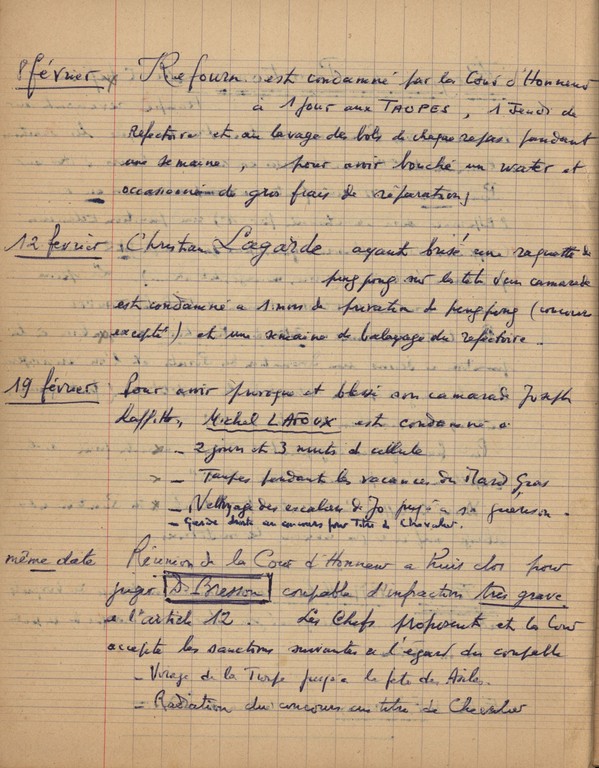 8 février Refourn. est condamné par la Cour d'Honneur
à 1 jour aux TAUPES, 1 Jeudi de
Refectoire et au lavage des bols de chaque repas pendant
une semaine, pour avoir bouché un water et
occasionné de gros frais de réparation,
12 février Christian Lagarde ayant brisé une raquette de
ping pong sur la tete d'un camarade
est condamné a 1 mois de privation de ping pong (concours
excepté) et une semaine de balayage du refectoire.
19 février Pour avoir provoqué et blessé son camarade Joseph
Laffitte, Michel LAFOUX est condamné a
- 2 jours et 3 nuits de cellule
- Taupes pendant les vacances du Mard Gras
- Nettoyage des escaliers de Jo jusqu'a sa guerison.
- au concours pour Titre de Chevalier.
même date Réunion de la Cour d'Honneur a huis clos pour
juger D. Bresson coupable d'infraction très grave
a l'article 12. Les Chefs proposent et la Cour
accepte les sanctions suivantes a l'égard du coupable
- de la Turfe jusqu'a la fete des
- Radiation du concours au titre de Chevalier